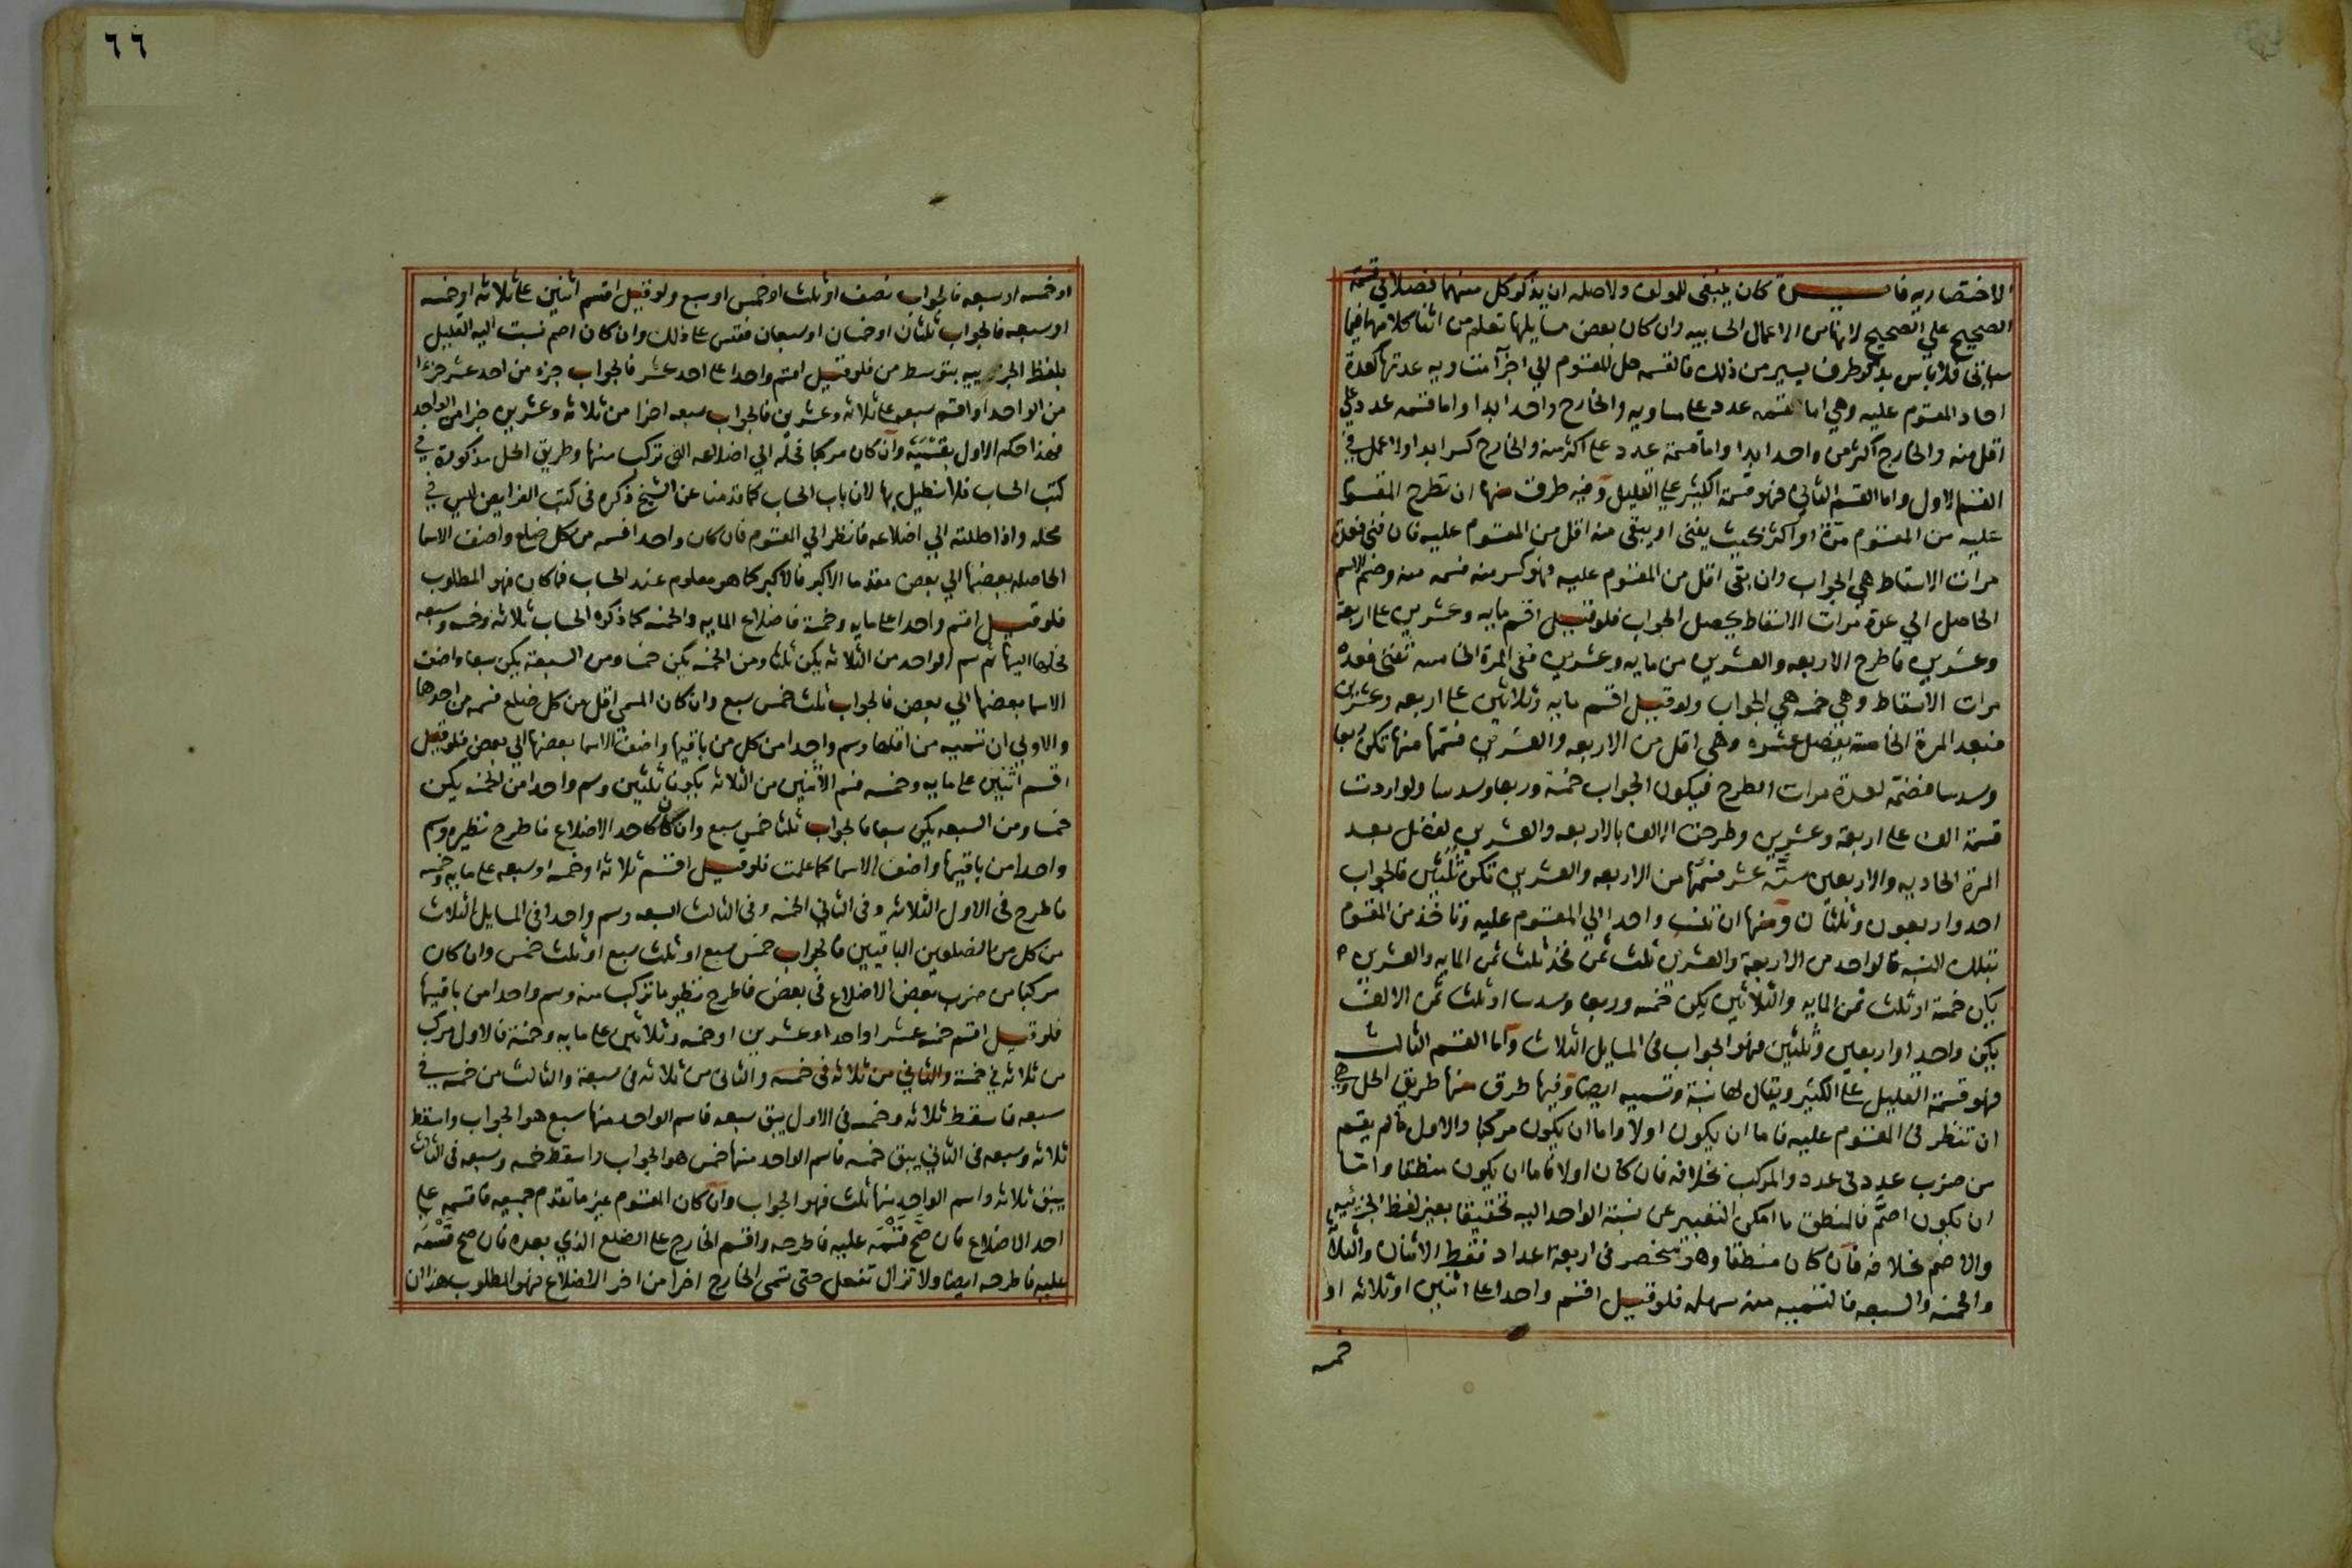 الاختصاريه فايدة كان ينبغي للمولف ولاصله ان يذكر كل منهما فصلا في قسمة
الصحيح علي الصحيح لانها من الاعمال الحسابيه وان كان بعض مسايلها تعلم من اثنا كلامهما فيما
سياتي فلا باس بذكر طرف يسير من ذلك فالقسمه حل المقسوم الي اجزآ متساويه عدتها كعدة
احاد المقسوم عليه وهي اما قسمه عدد على مساويه والخارج واحد ابدا واما قسمه عدد علي
اقل منه والخارج اكثر من واحد ابدا واما قسمة عدد على اكثر منه والخارج كسر ابدا ولا عمل في
القسم الاول واما القسم الثاني فهو قسمة الكثير علي القليل وفيه طرق منها ان تطرح المقسوم
عليه من المقسوم مرة او اكثر بحيث يفنى او يبقى منه اقل من المقسوم عليه فان فني فعدة
مرات الاسقاط هي الجواب وان بقى اقل من المقسوم عليه فهو كسر منه فسمه منه وضم الاسم
الحاصل الي عدة مرات الاسقاط يحصل الجواب فلو قيل اقسم مايه وعشرين على اربعة
وعشرين فاطرح الاربعه والعشرين من مايه وعشرين ففى المرة الخامسه تفنى فعده
مرات الاسقاط وهي خمسه هي الجواب ولو قيل اقسم مايه وثلاثين على اربعه وعشرين
فبعد المرة الخامسة يفضل عشره وهى اقل من الاربعه والعشرين فسمها منها تكن ربعا
وسدسا فضمه لعدة مرات الطرح فيكون الجواب خمسة وربعا وسدسا ولو اردت
قسمة الف على اربعة وعشرين وطرحت الالف بالاربعه والعشرين لفضل بعد
المرة الحاديه والاربعين ستة عشر فسمها من الاربعه والعشرين تكن ثلثين فالجواب
احد واربعون وثلثان ومنها ان تنسب واحدا الي المقسوم عليه وتاخذ من المقسوم
بتلك النسبه فالواحد من الاربعة والعشرين ثلث ثمن فخذ ثلث ثمن المايه والعشرين
يكن خمسة او ثلث ثمن المايه والثلاثين يكن خمسه وربعا وسدسا او ثلث ثمن الالف
يكن واحد او اربعين وثلثين فهو الجواب فى المسايل الثلاث واما القسم الثالث
فهو قسمة القليل على الكثير ويقال لها نسبة وتسميه ايضا وفيها طرق منها طريق الحل وهي
ان تنظر فى المقسوم عليه فاما ان يكون اولا واما ان يكون مركبا والاول ما لم يقم
من ضرب عدد فى عدد والمركب بخلافه فان كان اولا فاما ان يكون منطقا واما
ان يكون اصم فالمنطق ما امكن التعبير عن نسبة الواحد اليه تحقيقا بغير لفظ الجزئيه
والاصم بخلافه فان كان منطقا وهو منحصر فى اربعة اعداد فقط الاثنان والثلاثة
والخمسه والسبعه فالتسميه منه سهله فلو قيل اقسم واحدا على اثنين او ثلاثه او
خمسه
٦٦
او خمسه او سبعه فالجواب نصف او ثلث او خمس او سبع ولو قيل اقسم اثنين على ثلاثه او خمسه
او سبعه فالجواب ثلثان او خمسان او سبعان فقس على ذلك وان كان اصم نسبت اليه القليل
بلفظ الجزييه بتوسط من فلو قيل اقسم واحدا على احد عشر فالجواب جزء من احد عشر جزءا
من الواحد او اقسم سبعه على ثلاثه وعشرين فالجواب سبعه اجزا من ثلاثه وعشرين جزا من الواحد
فهذا حكم الاول بقسميه وان كان مركبا فحله الي اضلاعه التى تركب منها وطريق الحل مذكورة في
كتب الحساب فلا نطيل بها لان باب الحساب كما قدمنا عن الشيخ ذكره فى كتب الفرايض ليس في
محله واذا حللته الي اضلاعه فانظر الي المقسوم فان كان واحدا فسمه من كل ضلع واضف الاسما
الحاصله بعضها الي بعض مقدما الاكبر فالاكبر كما هو معلوم عند الحساب فما كان فهو المطلوب
فلو قيل اقسم واحدا على مايه وخمسة فاضلاع المايه والخمسه كما ذكره الحساب ثلاثه وخمسه وسبعه
فحلها اليها ثم سم الواحد من الثلاثه يكن ثلثا ومن الخمسه يكن خمسا ومن السبعة يكن سبعا واضف
الاسما بعضها الي بعض فالجواب ثلث خمس سبع وان كان المسمى اقل من كل ضلع فسمه من احدها
والاولي ان تسميه من اقلها وسم واحدا من كل من باقيها واضف الاسما بعضها الي بعض فلو قيل
اقسم اثنين على مايه وخمسه فسم الاثنين من الثلاثه يكونا ثلثين وسم واحدا من الخمسه يكن
خمسا ومن السبعه يكن سبعا فالجواب ثلثا خمس سبع وان كان كاحد الاضلاع فاطرح نظيره وسم
واحدا من باقيها واضف الاسما كما علمت فلو قيل اقسم ثلاثه او خمسه او سبعه على مايه وخمسه
فاطرح فى الاول الثلاثه وفى الثاني الخمسه وفى الثالث السبعه وسم واحدا فى المسايل الثلاث
من كل من الضلعين الباقيين فالجواب خمس سبع او ثلث سبع او ثلث خمس وان كان
مركبا من ضرب بعض الاضلاع فى بعض فاطرح نظير ما تركب منه وسم واحدا من باقيها
فلو قيل اقسم خمسه عشر او احدا وعشرين او خمسه وثلاثين على مايه وخمسة فالاول مركب
من ثلاثه في خمسة والثاني من ثلاثه فى خمسه والثانى من ثلاثه فى سبعة والثالث من خمسه في
سبعه فاسقط ثلاثه وخمسه فى الاول يبق سبعه فاسم الواحد منها سبع هو الجواب واسقط
ثلاثه وسبعه فى الثاني يبق خمسه فاسم الواحد منها خمس هو الجواب واسقط خمسه وسبعه فى الثالث
يبق ثلاثه واسم الواحد منها ثلث فهو الجواب وان كان المقسوم غير ما تقدم جميعه فاقسمه علي
احد الاضلاع فان صح قسمه عليه فاطرحه واقسم الخارج على الضلع الذي بعده فان صح قسمه
عليه فاطرحه ايضا ولا تزال تفعل حتى تسمى الخارج اخرا من اخر الاضلاع فهو المطلوب هذا ان